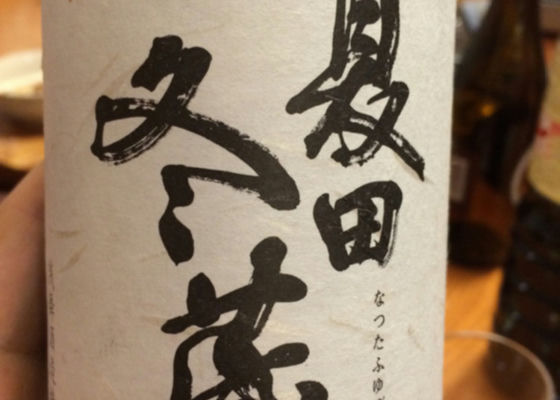 夏田
冬蔵
なつたふゆ